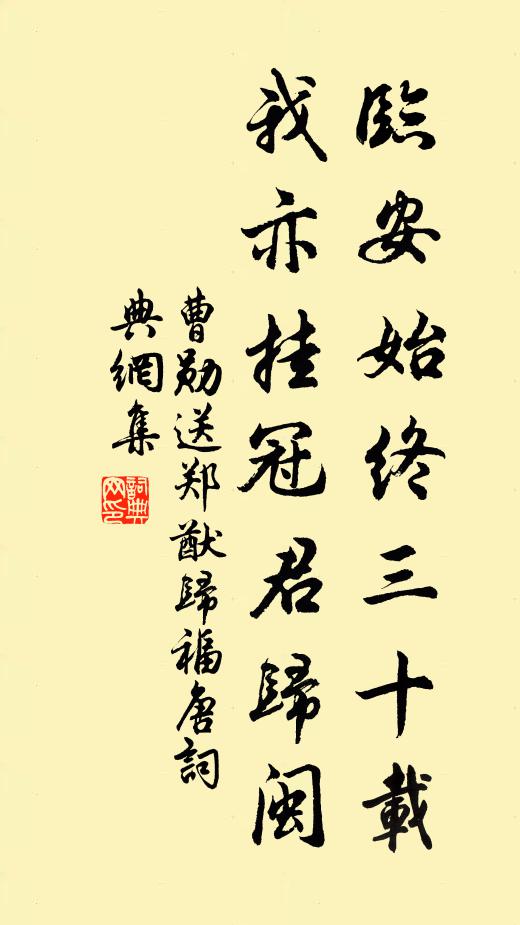 臨安始終三十載
我亦挂冠君歸閩
曹勛送郑猷歸福唐詞
典網集
詞典网印